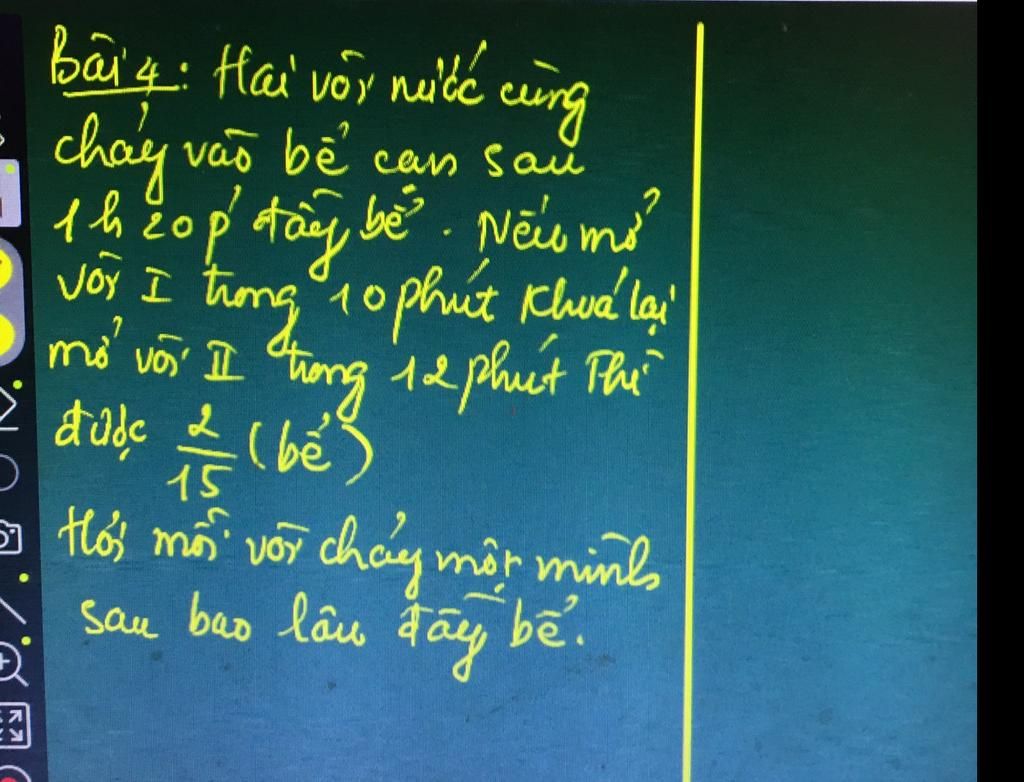 Bài 4: Hai vòi nước cùng
chảy vào bể cạn sau
1h 20p' đầy bể. Nếu mở
vòi I trong 10 phút khoá lại
mở vòi II trong 12 phút thì
được 2/15 (bể)
Hỏi mỗi vòi chảy một mình
sau bao lâu đầy bể.